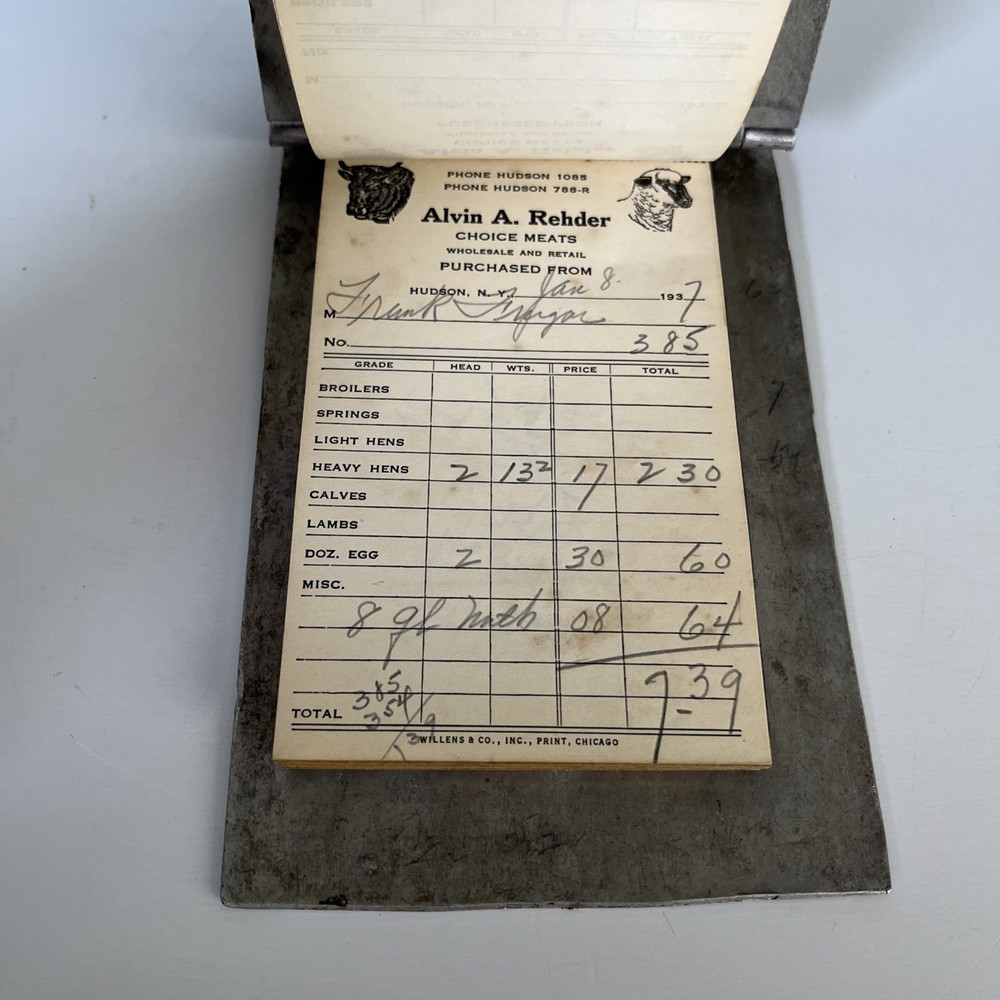 PHONE HUDSON 1085
PHONE HUDSON 788-R
Alvin A. Rehder
CHOICE MEATS
WHOLESALE AND RETAIL
PURCHASED FROM
HUDSON, N. Y. Jan 8. 1937
M Frank
No. 385
GRADE HEAD WTS. PRICE TOTAL
BROILERS
SPRINGS
LIGHT HENS
HEAVY HENS 2 13² 17 2 30
CALVES
LAMBS
DOZ. EGG 2 30 60
MISC.
8 08 64
7-39
385
354
TOTAL
WILLENS & CO., INC., PRINT, CHICAGO